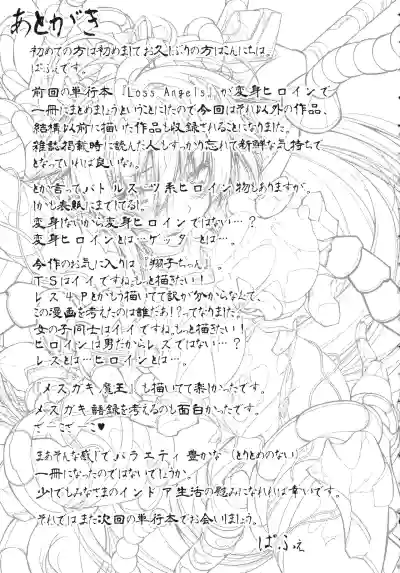 あとがき
初めての方は初めましてお久しぶりの方はこんにちは。
ぱふぇです。
前回の単行本『Loss Angels』が変身ヒロインで
一冊にまとめましょうということにしたので今回はそれ以外の作品、
結構以前に描いた作品も収録されることになりました。
雑誌掲載時に読んだ人もすっかり忘れて新鮮な気持ちで
となっていれば良いなぁ。
とか言ってバトルスーツ系ヒロイン物もありますが。
しかも表紙にまでしてるし。
変身しないから変身ヒロインではない…?
変身ヒロインとは…ゲッターとは…。
今作のお気に入りは『翔子ちゃん』。
TSはイイですねもっと描きたい!
レズ4Pとかもう描いてて訳が分からなんて、
この漫画を考えたのは誰だぁ!?ってなりました。
女の子同士はイイですねもっと描きたい!
ヒロインは男だからレズではない…?
レズとは…ヒロインとは…。
『メスガキ魔王』も描いてて楽しかったです。
メスガキ語録を考えるのも面白かったです。
ざーこざーこ♥
まあそんな感じでバラエティ豊かな(とりとめのない)
一冊になったのではないでしょうか。
少しでもみなさまのインドア生活の慰みになれれば幸いです。
それではまた次回の単行本でお会いしましょう。
ぱふぇ